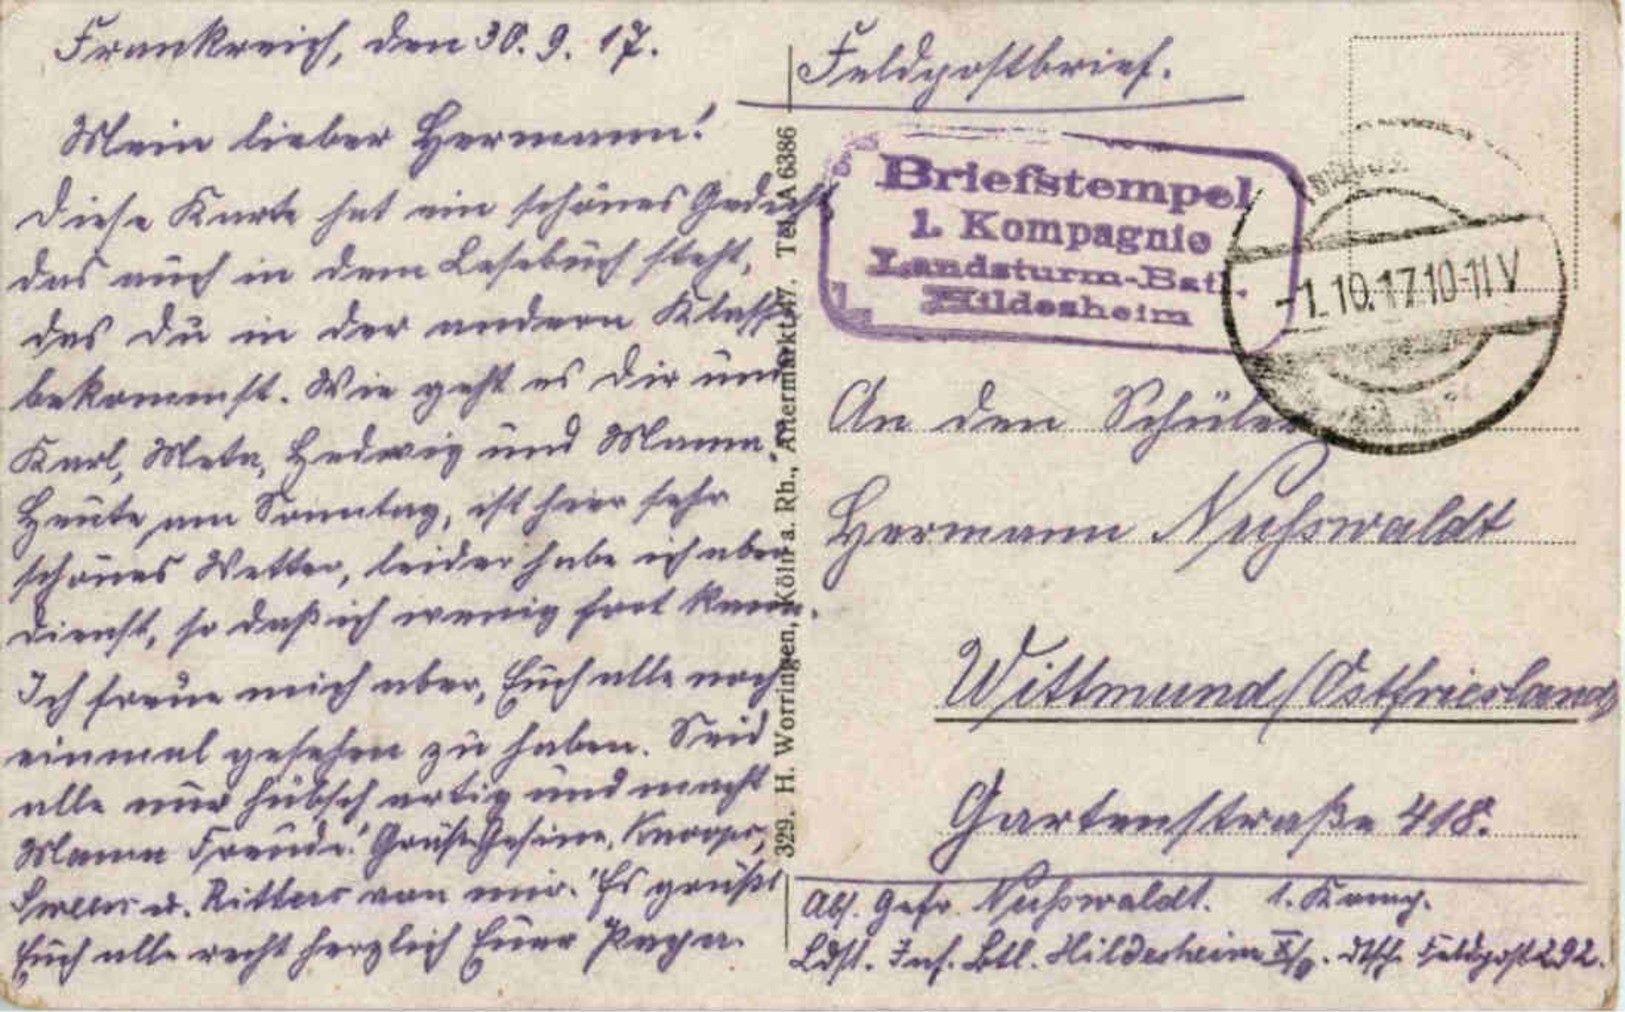 Frankreich, den 30. 9. 17.
Mein lieber Hermann!
Diese Karte hat ein schönes Gedicht
das auch in dem Lesebuch steht,
das Du in der andern Klasse
bekommst. Wie geht es Dir und
Karl, Meta, Hedwig und Mama.
Heute, am Sonntag, ist hier sehr
schönes Wetter, leider habe ich aber
Dienst, so daß ich wenig fort kann.
Ich freue mich aber, Euch alle noch
einmal gesehen zu haben. Seid
alle nur hübsch artig und macht
Mama Freude! Grüßt Gesine,
u. Ritters von mir. Es grüßt
Euch alle recht herzlich Euer Papa.
329. H. Worringen, Köln a. Rh., Altermarkt 47. Tel. A 6386
Feldpostbrief.
Briefstempel
1. Kompagnie
Landsturm-Batl.
Hildesheim
-1.10.17.10-11V
An den Schüler
Hermann Nußwaldt
Wittmund (Ostfriesland)
Gartenstraße 418.
Abs. Gefr. Nußwaldt. 1. Komp.
Ldst. Inf. Btl. Hildesheim dtsch. Feldpost 292.